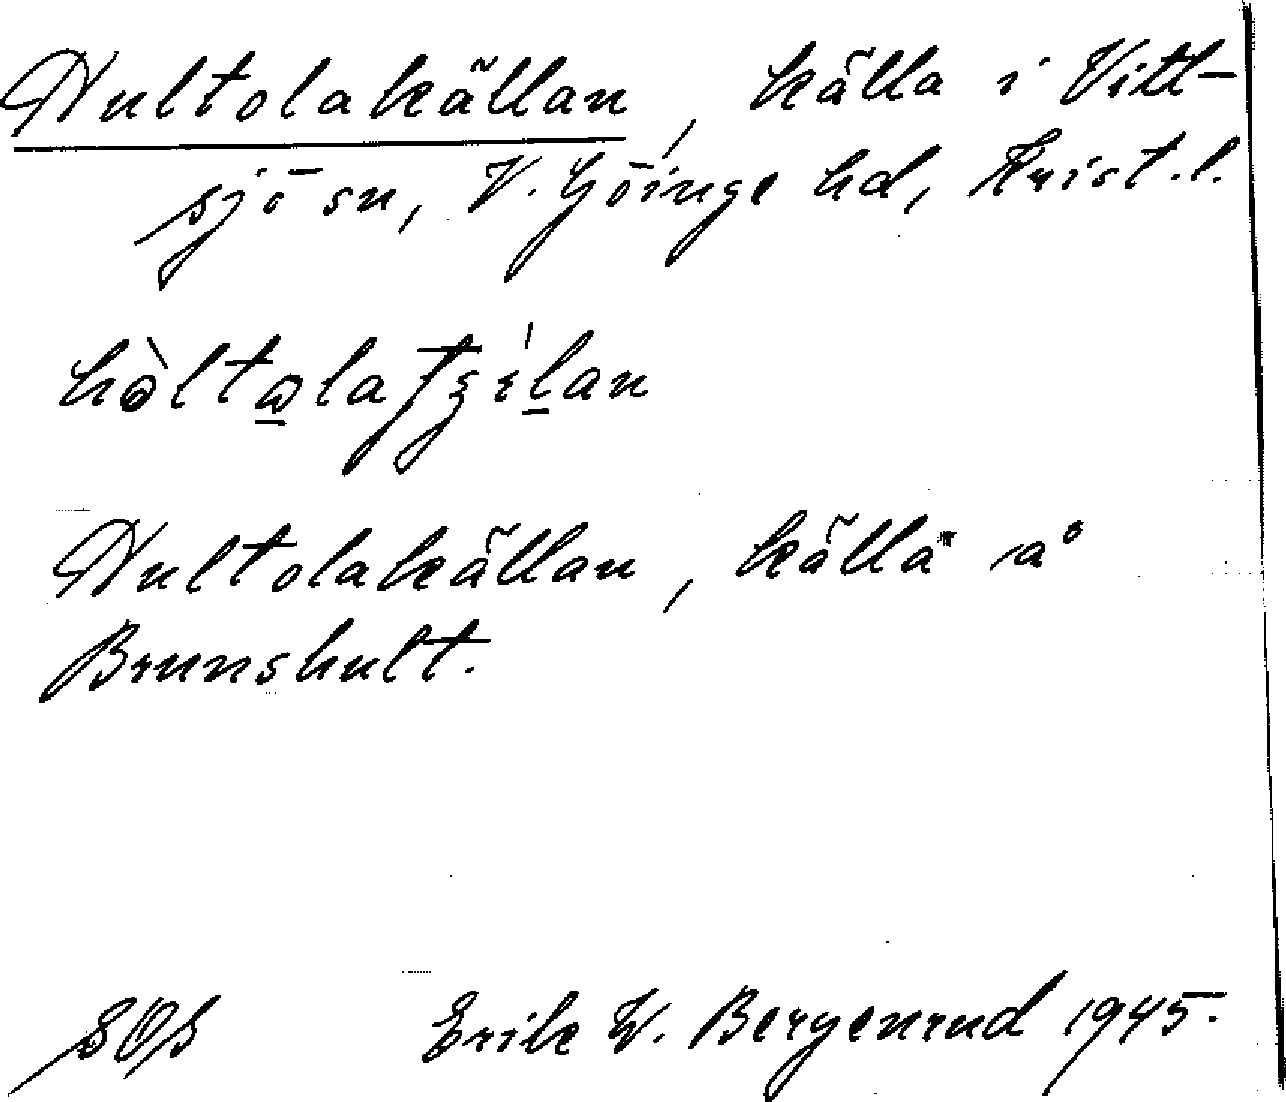 Hultolakällan, källa i Vitt-
sjö sn, V. Göinge hd, Krist. l.
Hultolakällan, källa å
Brunshult.
SOS Erik W. Bergenrud 1945.